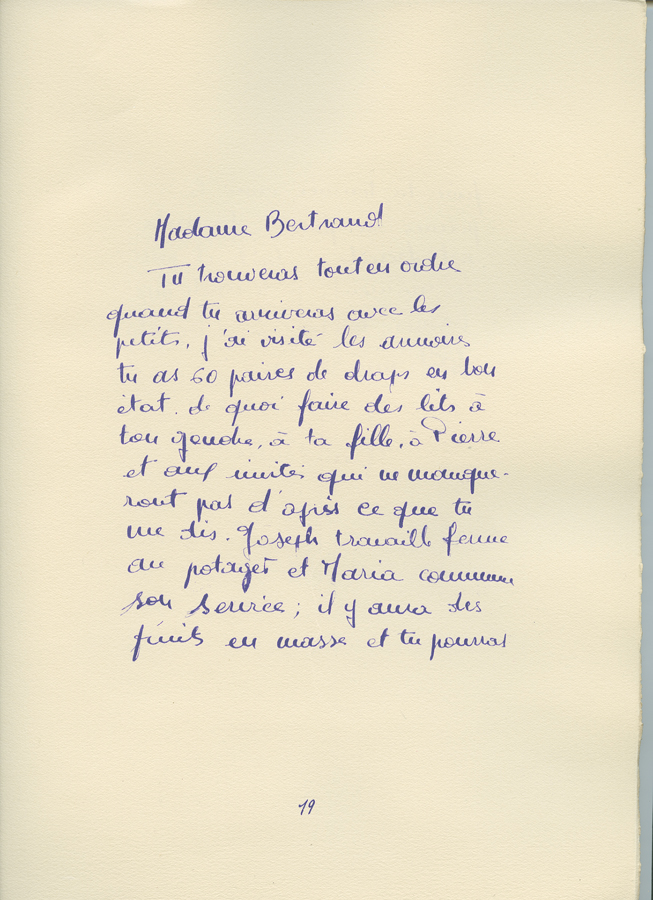 Madame Bertrand
Tu trouveras tout en ordre
quand tu arriveras avec les
petits, j'ai visité les armoires
tu as 60 paires de draps en bon
état. de quoi faire des lits à
ton gendre, à ta fille, à Pierre
et aux invités qui ne manque-
ront pas d'après ce que tu
me dis. Joseph travaille ferme
au potager et Maria commence
son service; il y aura des
fruits en masse et tu pourras
19